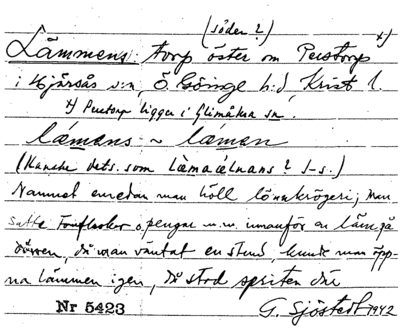 (söder?)
Lämmens: torp öster om Perstorp x)
i Hjärsås s:n, Ö. Göinge h:d, Krist l.
x) Perstorp ligger i Glimåkra sn.
lǽmans ~ lǽmen
(Kanske dets. som Læmaælnans? S-s.)
Namnet emedan man höll lönnkrögeri; man
satte tomflaskor o. pengar m.m. innanför en läm på
dörren, då man väntat en stund, kunde man öpp-
na lämmen igen, då stod spriten där
Nr 5423 G. Sjöstedt 1942